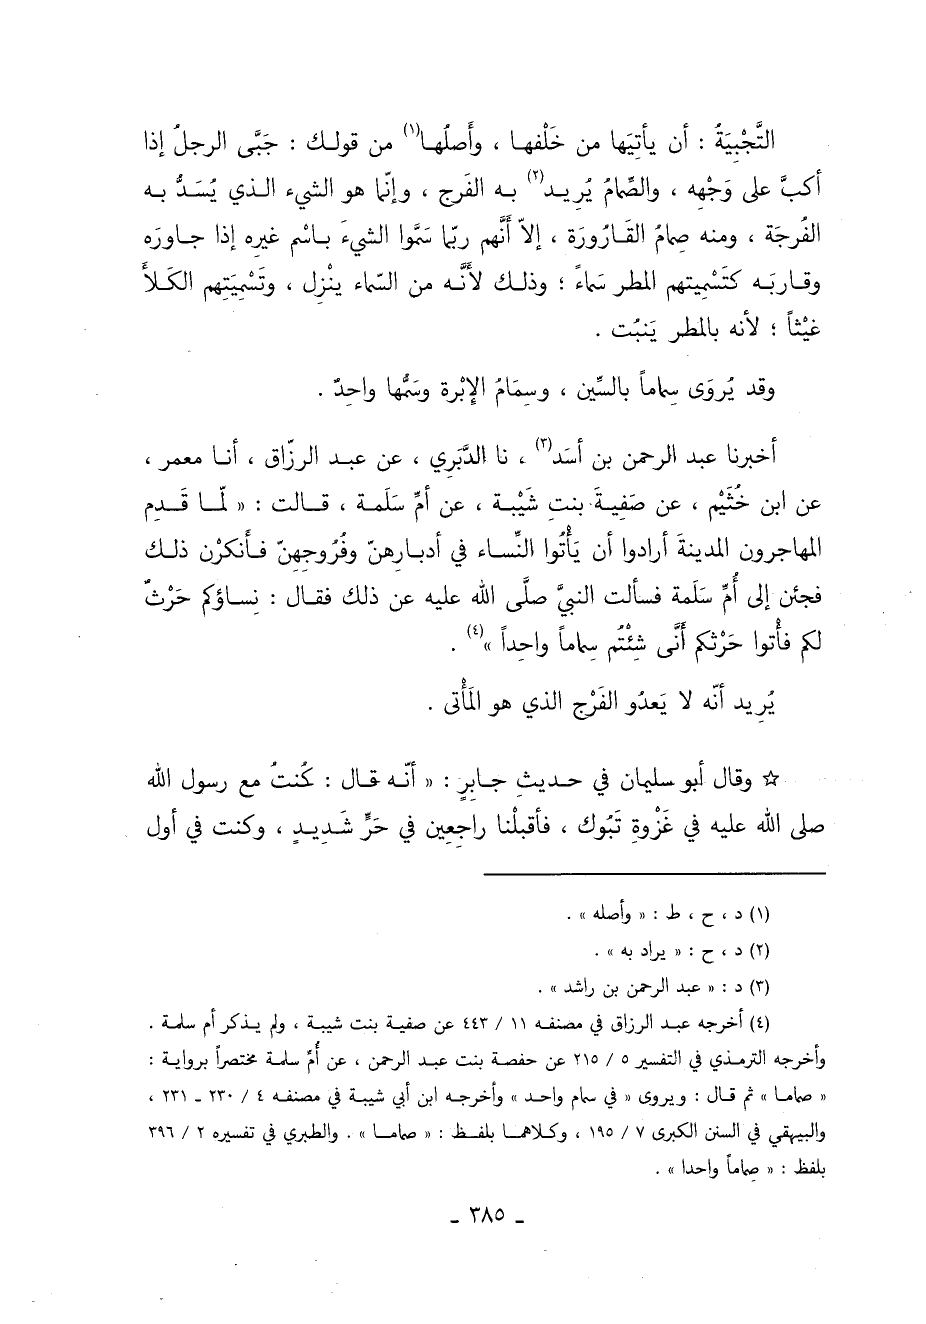 التَّجْبِيَةُ : أن يأتِيَها من خَلْفها ، وأَصلُها(١) من قولك : جَبَّى الرجلُ إذا
أكبَّ على وَجْهه ، والصِّمامُ يُريد(٢) به الفَرج ، وإنّما هو الشيء الذي يُسَدُّ به
الفُرجَة ، ومنه صِمامُ القَارُورَة ، إلاّ أَنَّهم ربّما سَمَّوا الشيءَ بـاسْم غيرِه إذا جاورَه
وقاربَه كتَسْمِيتهم المطر سَماءً ؛ وذلك لأنَّه من السَّماء ينْزِل ، وتَسْمِيَتِهم الكَلأَ
غَيْثاً ؛ لأنه بالمطر يَنبُت .
وقد يُروَى سِماماً بالسِّين ، وسِمَامُ الإبْرة وسَمُّها واحِدٌ .
أخبرنا عبد الرحمن بن أسَد(٣) ، نا الدَّبَري ، عن عبد الرزّاق ، أنا معمر ،
عن ابن خُثَيْم ، عن صَفِيةَ بنتِ شَيْبة ، عن أمِّ سَلَمة ، قالت : « لّما قَدِم
المهاجرون المدينةَ أرادوا أن يَأْتُوا النِّساء في أدبارِهنّ وفُروجِهنّ فأنكرْن ذلك
فجئن إلى أُمِّ سَلَمة فسألت النبيَّ صلَّى الله عليه عن ذلك فقال : نِساؤكم حَرْثٌ
لكم فأْتوا حَرْثكم أَنَّى شِئْتُم سِماماً واحِداً »(٤) .
يُرِيد أنّه لا يَعدُو الفَرْج الذي هو المَأْتى .
☆ وقال أبو سليمان في حديثِ جابرٍ : « أنّه قال : كُنتُ مع رسول الله
صلى الله عليه في غَزْوةِ تَبُوك ، فأقبلْنا راجِعين في حَرٍّ شَديدٍ ، وكنت في أول
(١) د ، ح ، ط : « وأصله » .
(٢) د ، ح : « يراد به » .
(٣) د : « عبد الرحمن بن راشد » .
(٤) أخرجه عبد الرزاق في مصنفه ١١ / ٤٤٣ عن صفية بنت شيبة ، ولم يذكر أم سلمة .
وأخرجه الترمذي في التفسير ٥ / ٢١٥ عن حفصة بنت عبد الرحمن ، عن أُمّ سلمة مختصراً برواية :
« صماما » ثم قال : ويروى « في سمام واحد » وأخرجه ابن أبي شيبة في مصنفه ٤ / ٢٣٠ ـ ٢٣١ ،
والبيهقي في السنن الكبرى ٧ / ١٩٥ ، وكلاهما بلفظ : « صماما » . والطبري في تفسيره ٢ / ٣٩٦
بلفظ : « صِماماً واحدا » .
ـ ٣٨٥ ـ